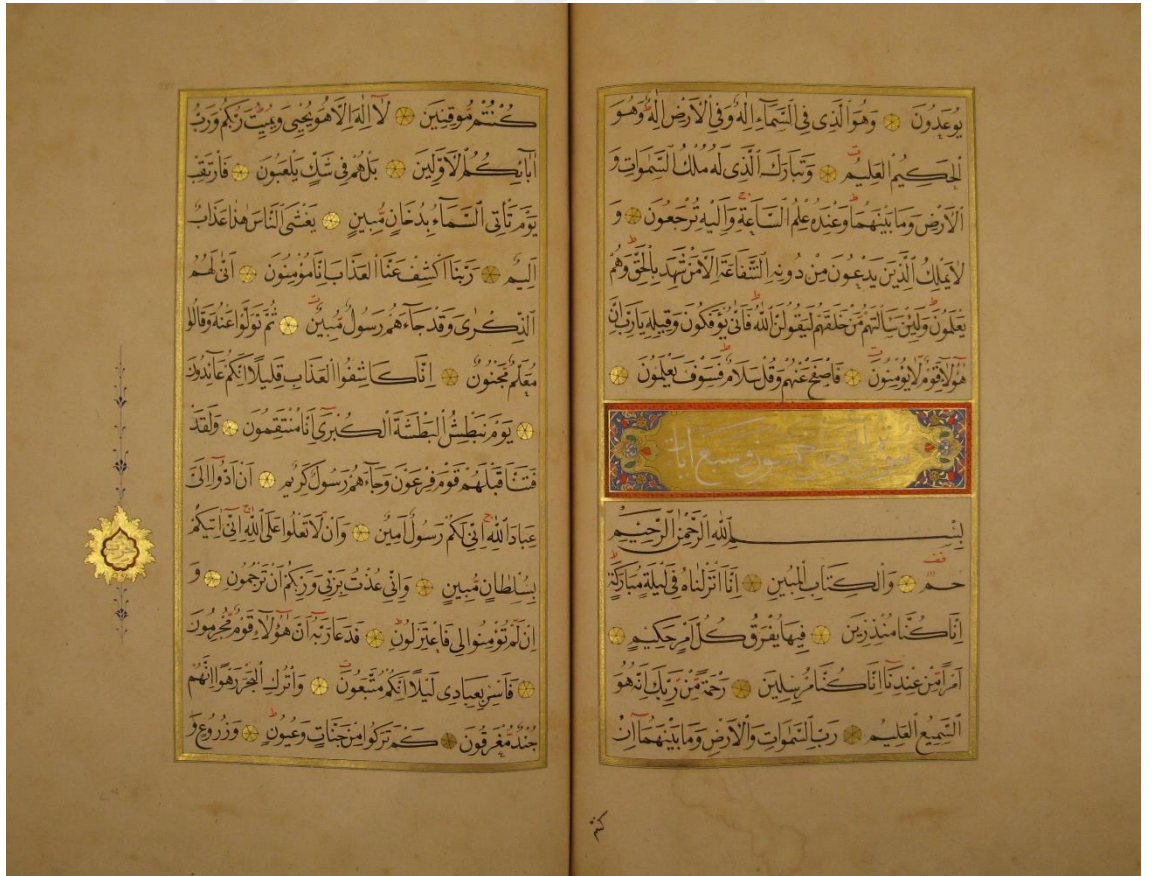 يُوعَدُونَ وَهُوَ الَّذِى فِى السَّمَاءِ اِلٰهٌ وَفِى الْاَرْضِ اِلٰهٌ وَهُوَ
الْحَكِيمُ الْعَلِيمُ وَتَبَارَكَ الَّذِى لَهُ مُلْكُ السَّمٰوَاتِ وَ
الْاَرْضِ وَمَا بَيْنَهُمَا وَعِنْدَهُ عِلْمُ السَّاعَةِ وَاِلَيْهِ تُرْجَعُونَ وَ
لَا يَمْلِكُ الَّذِينَ يَدْعُونَ مِنْ دُونِهِ الشَّفَاعَةَ اِلَّا مَنْ شَهِدَ بِالْحَقِّ وَهُمْ
يَعْلَمُونَ وَلَئِنْ سَاَلْتَهُمْ مَنْ خَلَقَهُمْ لَيَقُولُنَّ اللّٰهُ فَاَنّٰى يُؤْفَكُونَ وَقِيلِهِ يَارَبِّ اِنَّ
هٰؤُلَاءِ قَوْمٌ لَا يُؤْمِنُونَ فَاصْفَحْ عَنْهُمْ وَقُلْ سَلَامٌ فَسَوْفَ يَعْلَمُونَ
خمسون وسبع ايات
بِسْمِ اللّٰهِ الرَّحْمٰنِ الرَّحِيمِ
حٰمٓ وَالْكِتَابِ الْمُبِينِ اِنَّا اَنْزَلْنَاهُ فِى لَيْلَةٍ مُبَارَكَةٍ
اِنَّا كُنَّا مُنْذِرِينَ فِيهَا يُفْرَقُ كُلُّ اَمْرٍ حَكِيمٍ
اَمْرًا مِنْ عِنْدِنَا اِنَّا كُنَّا مُرْسِلِينَ رَحْمَةً مِنْ رَبِّكَ اِنَّهُ هُوَ
السَّمِيعُ الْعَلِيمُ رَبِّ السَّمٰوَاتِ وَالْاَرْضِ وَمَا بَيْنَهُمَا اِنْ
كنتم
كُنْتُمْ مُوقِنِينَ لَا اِلٰهَ اِلَّا هُوَ يُحْيِى وَيُمِيتُ رَبُّكُمْ وَرَبُّ
اٰبَائِكُمُ الْاَوَّلِينَ بَلْ هُمْ فِى شَكٍّ يَلْعَبُونَ فَارْتَقِبْ
يَوْمَ تَاْتِى السَّمَاءُ بِدُخَانٍ مُبِينٍ يَغْشَى النَّاسَ هٰذَا عَذَابٌ
اَلِيمٌ رَبَّنَا اكْشِفْ عَنَّا الْعَذَابَ اِنَّا مُؤْمِنُونَ اَنّٰى لَهُمُ
الذِّكْرٰى وَقَدْ جَاءَهُمْ رَسُولٌ مُبِينٌ ثُمَّ تَوَلَّوْا عَنْهُ وَقَالُوا
مُعَلَّمٌ مَجْنُونٌ اِنَّا كَاشِفُوا الْعَذَابِ قَلِيلًا اِنَّكُمْ عَائِدُونَ
يَوْمَ نَبْطِشُ الْبَطْشَةَ الْكُبْرٰى اِنَّا مُنْتَقِمُونَ وَلَقَدْ
فَتَنَّا قَبْلَهُمْ قَوْمَ فِرْعَوْنَ وَجَاءَهُمْ رَسُولٌ كَرِيمٌ اَنْ اَدُّوا اِلَىَّ
عِبَادَ اللّٰهِ اِنِّى لَكُمْ رَسُولٌ اَمِينٌ وَاَنْ لَا تَعْلُوا عَلَى اللّٰهِ اِنِّى اٰتِيكُمْ
بِسُلْطَانٍ مُبِينٍ وَاِنِّى عُذْتُ بِرَبِّى وَرَبِّكُمْ اَنْ تَرْجُمُونِ وَ
اِنْ لَمْ تُؤْمِنُوا لِى فَاعْتَزِلُونِ فَدَعَا رَبَّهُ اَنَّ هٰؤُلَاءِ قَوْمٌ مُجْرِمُونَ
فَاَسْرِ بِعِبَادِى لَيْلًا اِنَّكُمْ مُتَّبَعُونَ وَاتْرُكِ الْبَحْرَ رَهْوًا اِنَّهُمْ
جُنْدٌ مُغْرَقُونَ كَمْ تَرَكُوا مِنْ جَنَّاتٍ وَعُيُونٍ وَزُرُوعٍ وَ